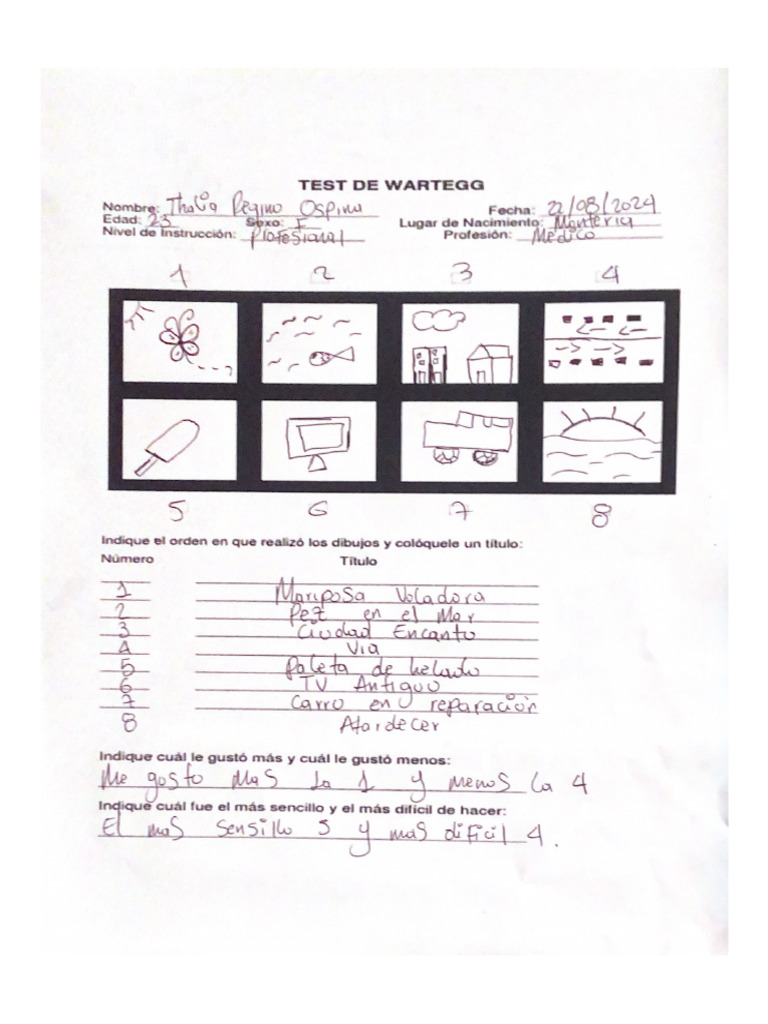 TEST DE WARTEGG
Nombre: Thalia Regino Ospina Fecha: 22/08/2024
Edad: 23 Sexo: F Lugar de Nacimiento: Monteria
Nivel de Instrucción: Profesional Profesión: Medico
1 2 3 4
5 6 7 8
Indique el orden en que realizó los dibujos y colóquele un título:
Número Título
1 Mariposa Voladora
2 Pez en el Mar
3 Ciudad Encanto
4 Via
5 Paleta de helado
6 TV Antiguo
7 Carro en reparación
8 Atardecer
Indique cuál le gustó más y cuál le gustó menos:
Me gosto mas la 1 y menos la 4
Indique cuál fue el más sencillo y el más difícil de hacer:
El mas sensillo 5 y mas dificil 4.